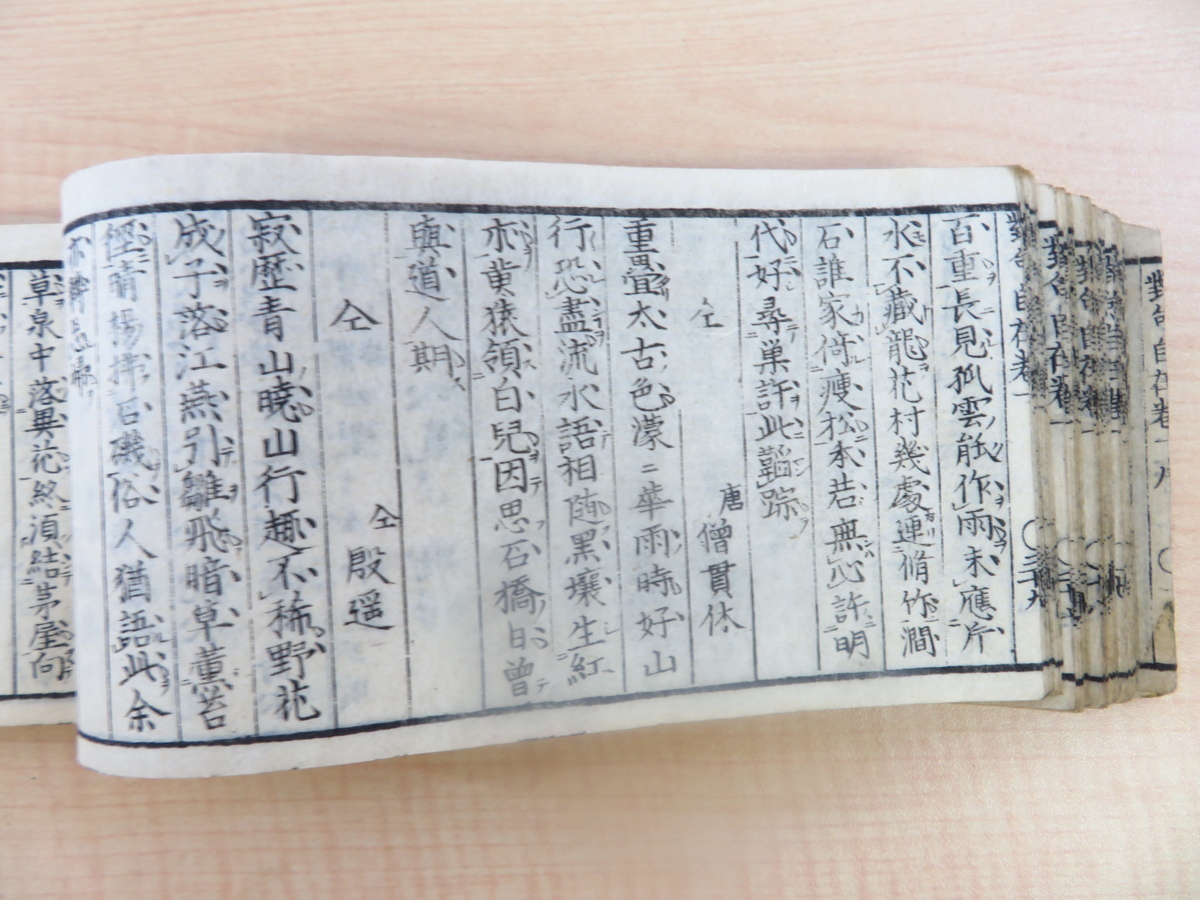 對句自在卷一
百重長見孤雲能作雨未應斤
水不藏龍花村幾處連脩竹澗
石誰家倚瘦松本若無心許明
代好尋巢許此韜踪
仝
唐 僧貫休
重疊太古色濛〻華雨時好山
行恐盡流水語相随黒壤生紅
朮黄猿領白兒因思石橋日曽
與道人期
仝
仝 殷遥
寂歷青山曉山行趣不稀野花
成子落江燕引雛飛暗草薰苔
徑晴楊掃石磯俗人猶語此余
草泉中落異花終湏結茅屋向